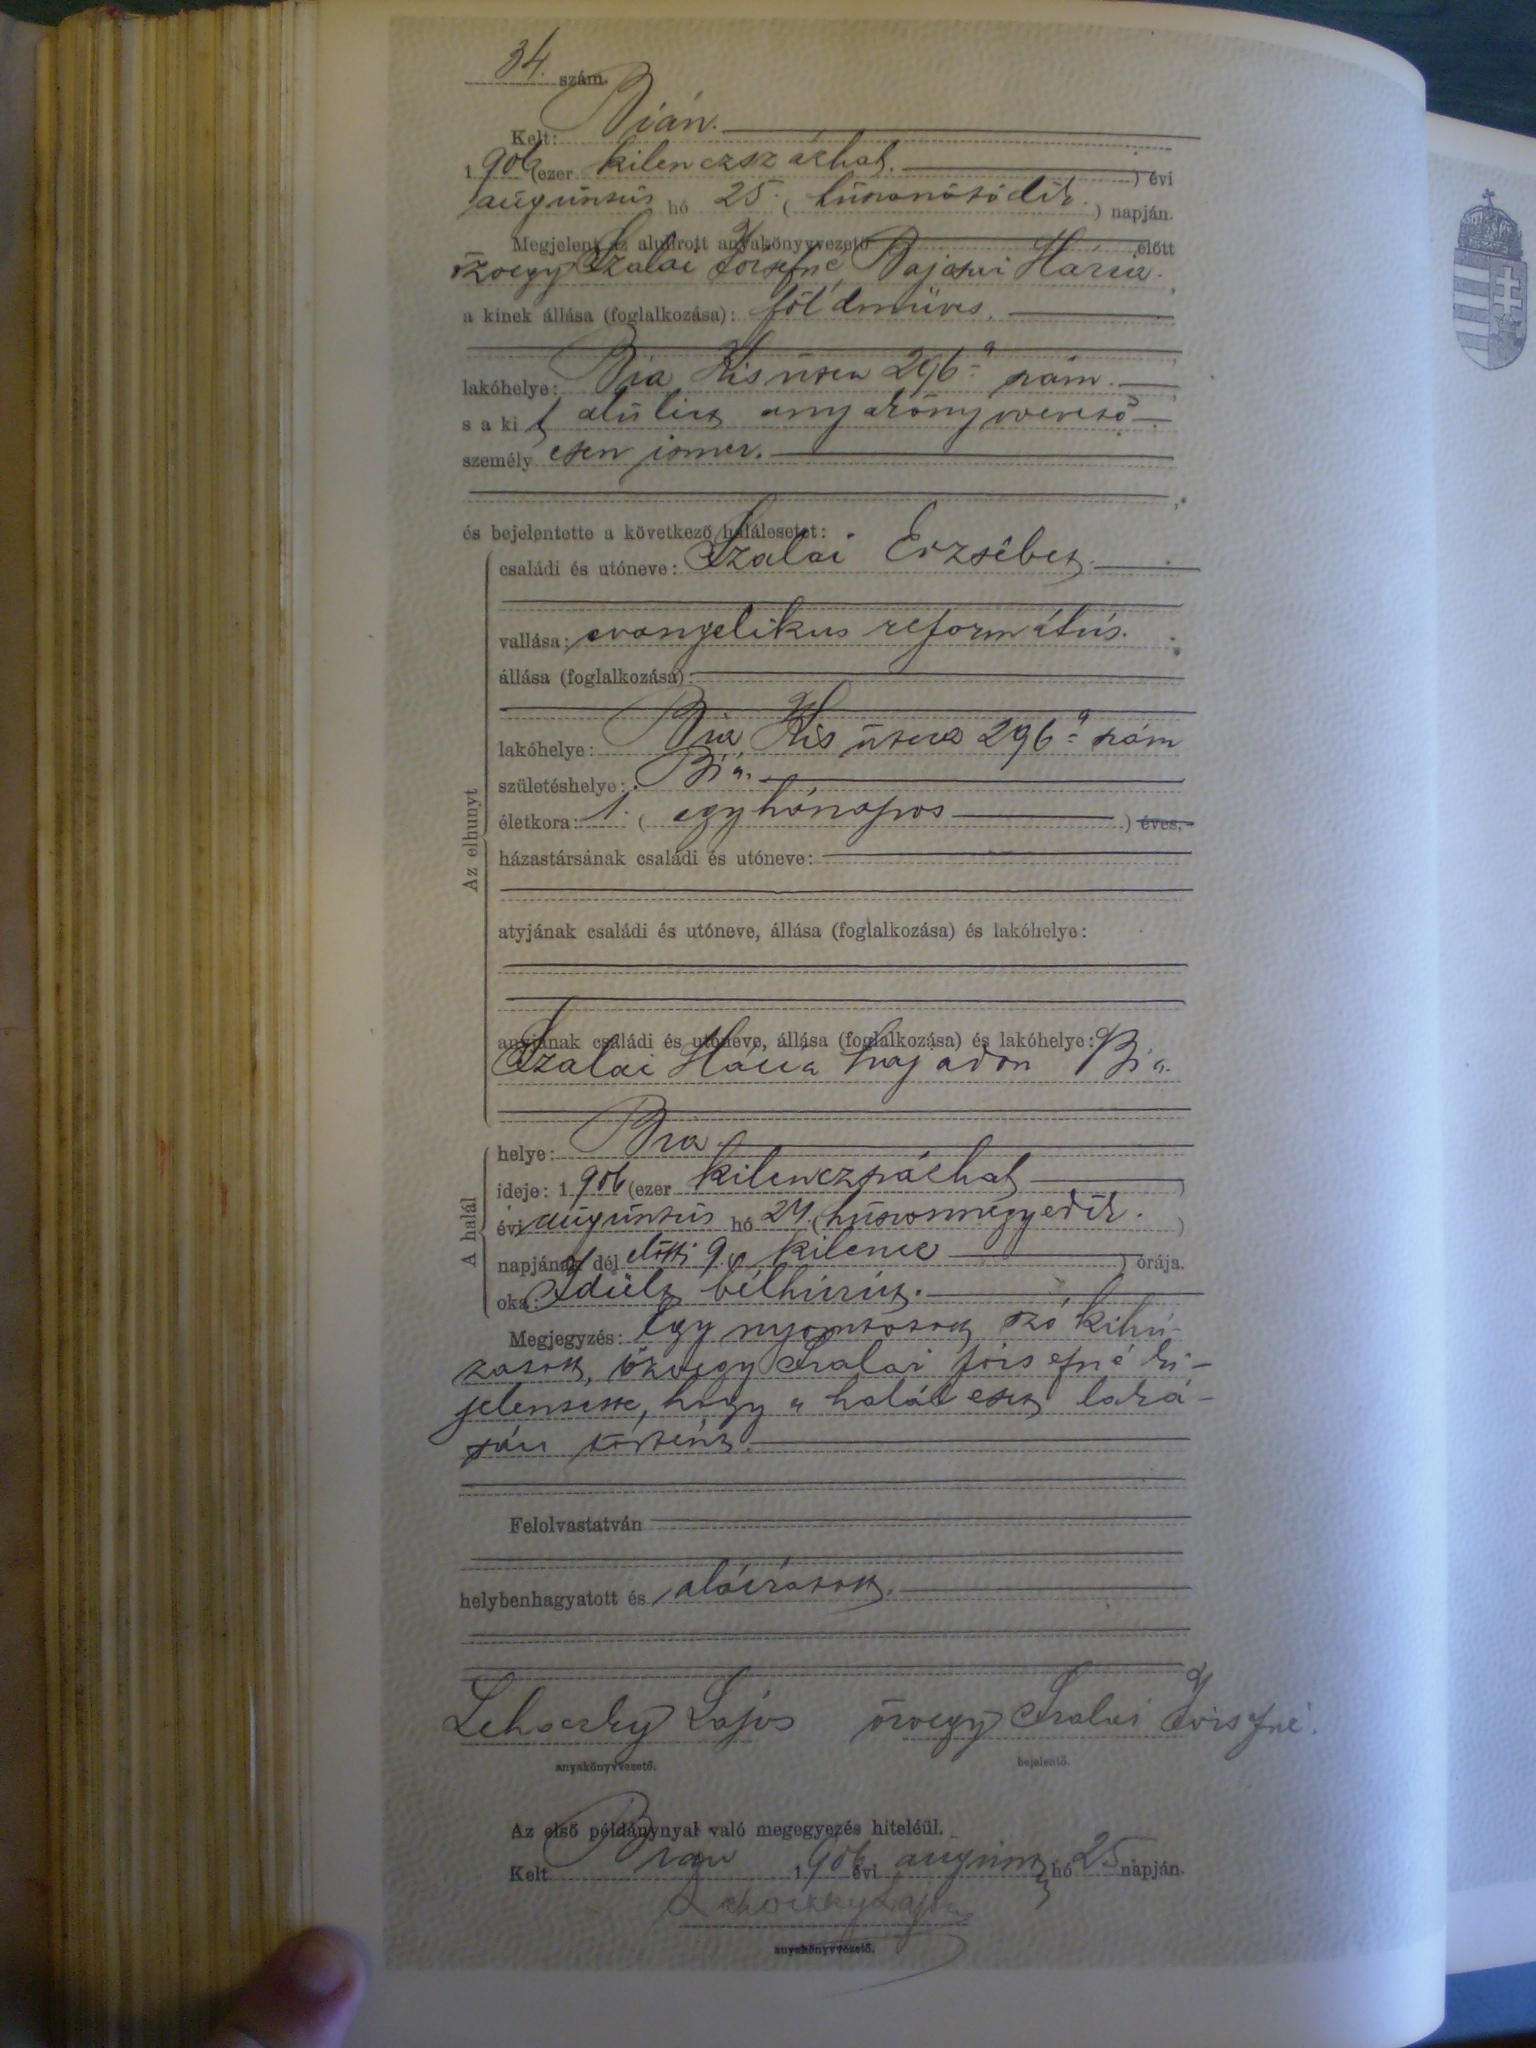 34. szám.
Kelt: Bián.
1906 (ezer kilenczszázhat. ) évi
augusztus hó 25. ( huszonötödik. ) napján.
Megjelent az alulírott anyakönyvvezető előtt
özvegy Szalai Józsefné, Mária.
a kinek állása (foglalkozása): földmüves.
lakóhelye: Bia Kis útcza 296a szám.
s a kit alulirt anyakönyvvezető
személy esen ismer.
és bejelentette a következő halálesetet:
Az elhunyt
családi és utóneve: Szalai Erzsébet.
vallása: evangelikus református.
állása (foglalkozása):
lakóhelye: Bia Kis útcza 296a szám
születéshelye: Bia.
életkora: 1. ( egy hónapos ) éves.
házastársának családi és utóneve:
atyjának családi és utóneve, állása (foglalkozása) és lakóhelye:
anyjának családi és utóneve, állása (foglalkozása) és lakóhelye:
Szalai Mária hajadon Bia.
A halál
helye: Bia
ideje: 1906 (ezer kilenczszázhat )
évi augusztus hó 24. (huszonnegyedik. )
napjának dél előtti 9 ( kilencz ) órája.
oka: Idült bélhurut.
Megjegyzés: Egy nyomtatott szó kihú-
zatott, özvegy Szalai Józsefné ki-
jelentette, hogy a halál eset laká-
sán történt.
Felolvastatván
helybenhagyatott és aláiratott.
Lehoczky Lajos özvegy Szalai Józsefné.
anyakönyvvezető. bejelentő.
Az első példánynyal való megegyezés hiteléül.
Kelt Bian 1906 évi augusztus hó 25 napján.
Lehoczky Lajos
anyakönyvvezető.